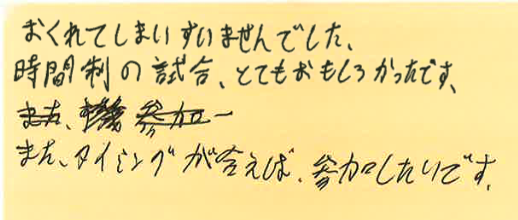 おくれてしまいすいませんでした、
時間制の試合、とてもおもしろかったです、
また、機 参加
また、タイミングが合えば、参加したいです、